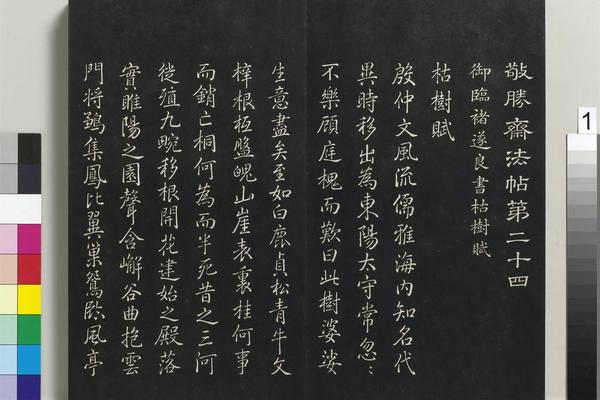 敬勝齋法帖第二十四
御臨褚遂良書枯樹賦
枯樹賦
殷仲文風流儒雅海内知名代
異時移出為東陽太守常忽〻
不樂顧庭槐而歎曰此樹婆娑
生意盡矣至如白鹿貞松青牛文
梓根柢盤魄山崖表裏桂何事
而銷亡桐何為而半死昔之三河
徙殖九畹移根開花建始之殿落
實睢陽之園聲含嶰谷曲抱雲
門將鶵集鳳比翼巢鴛臨風亭
1